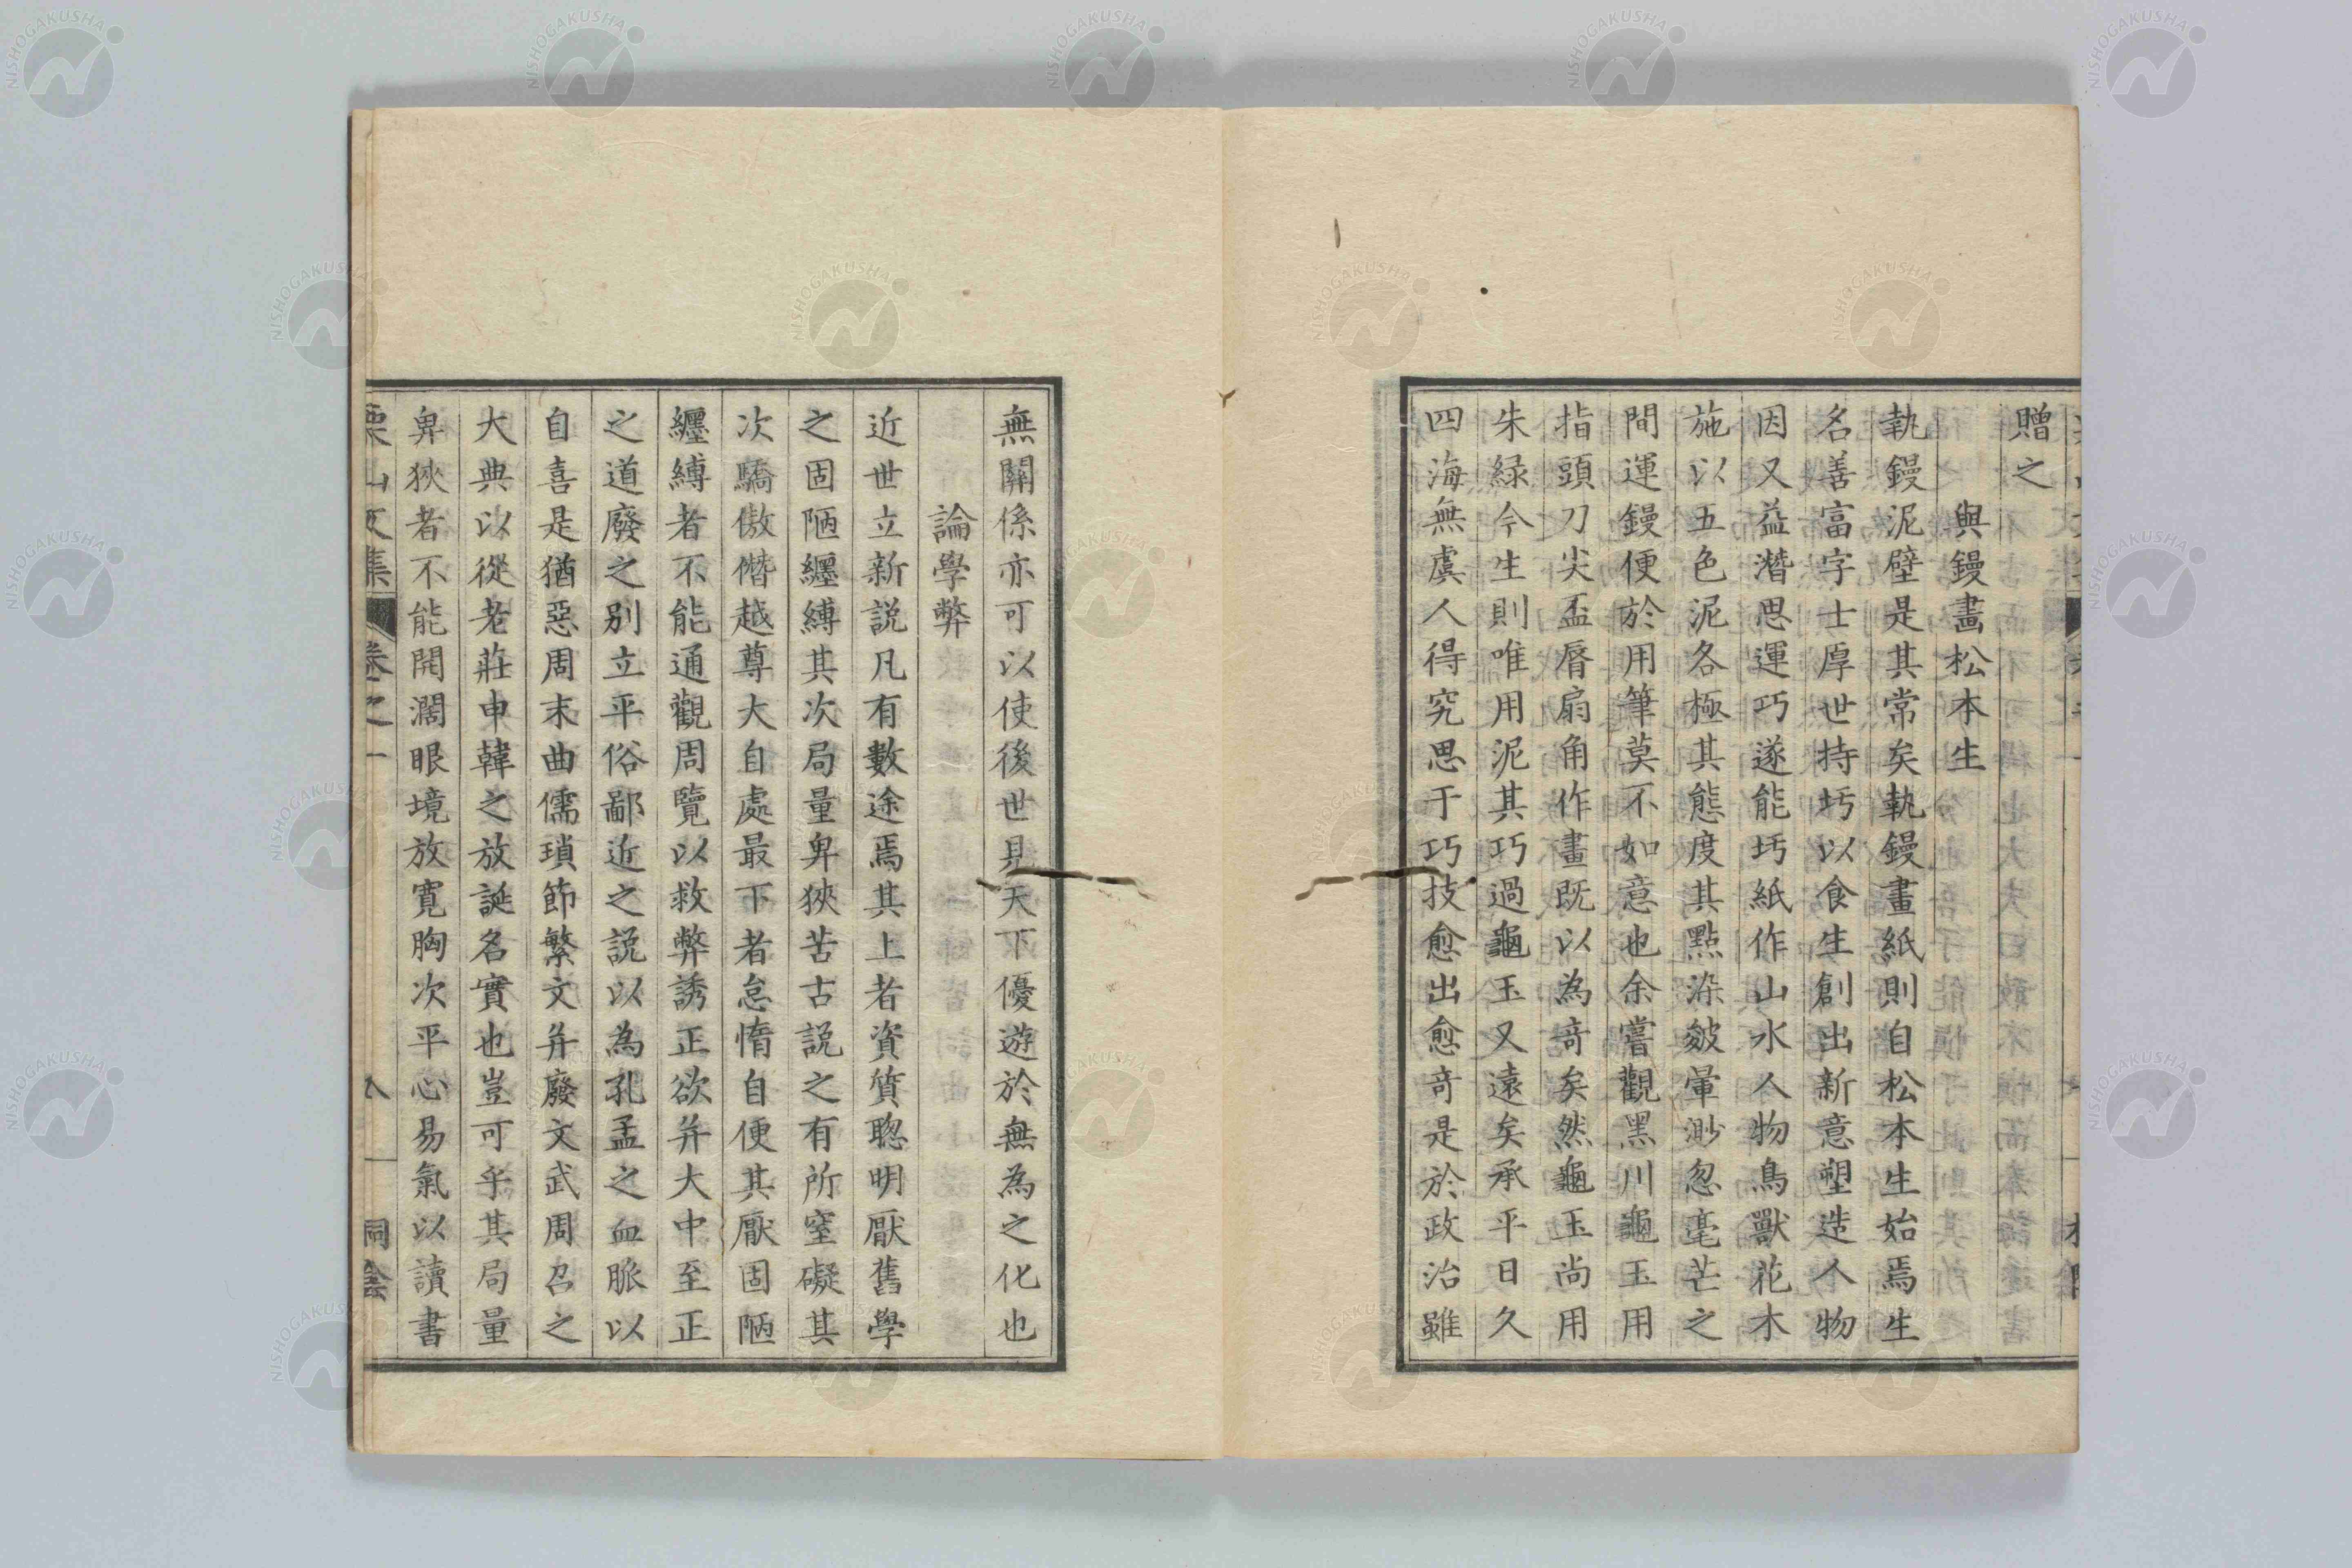 贈之
與鏝畫松本生
執鏝泥壁是其常矣執鏝畫紙則自松本生始焉生
名善富字士厚世持圬以食生創出新意塑造人物
因又益潛思運巧遂能圬紙作山水人物鳥獸花木
施以五色泥各極其態度其點染皴暈渺忽毫芒之
間運鏝便於用筆莫不如意也余嘗觀黑川龜玉用
指頭刀尖盃脣扇角作畫既以為竒矣然龜玉尚用
朱緑今生則唯用泥其巧過龜玉又遠矣承平日久
四海無虞人得究思于巧技愈出愈竒是於政治雖
無關係亦可以使後世見天下優遊於無為之化也
論學弊
近世立新説凡有數途焉其上者資質聰明厭舊學
之固陋纒縛其次局量卑狹苦古説之有所窒礙其
次驕傲僭越尊大自處最下者怠惰自便其厭固陋
纒縛者不能通觀周覽以救弊誘正欲并大中至正
之道廢之别立平俗鄙近之説以為孔孟之血脈以
自喜是猶惡周末曲儒瑣節繁文并廢文武周召之
大典以從老莊申韓之放誕名實也豈可乎其局量
卑狹者不能開濶眼境放寛胸次平心易氣以讀書
栗山文集 卷之一 八
NISHOGAKUSHA